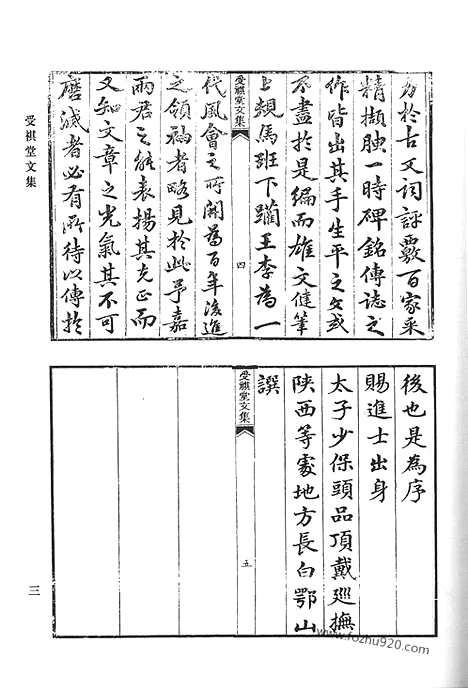 力於古文詞評覈百家采
精擷腴一時碑銘傳誌之
作皆出其手生平之文或
不盡於是編而雄文健筆
上規馬班下躪王李為一
受祺堂文集
四
代風會之所開為百年後進
之領袖者略見於此予嘉
兩君之能表揚其先正而
又知文章之光氣其不可
磨滅者必有所待以傳於
後也是為序
賜進士出身
太子少保頭品頂戴廵撫
陝西等處地方長白鄂山
譔
受祺堂文集
五
受祺堂文集
三
www.fozhu920.com